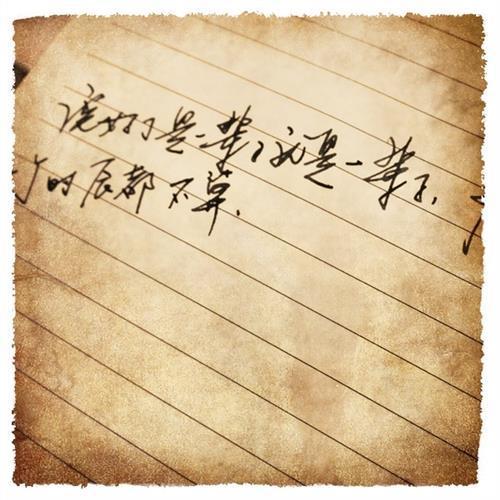 说好了是一辈子就是一辈子，
个时辰都不算，